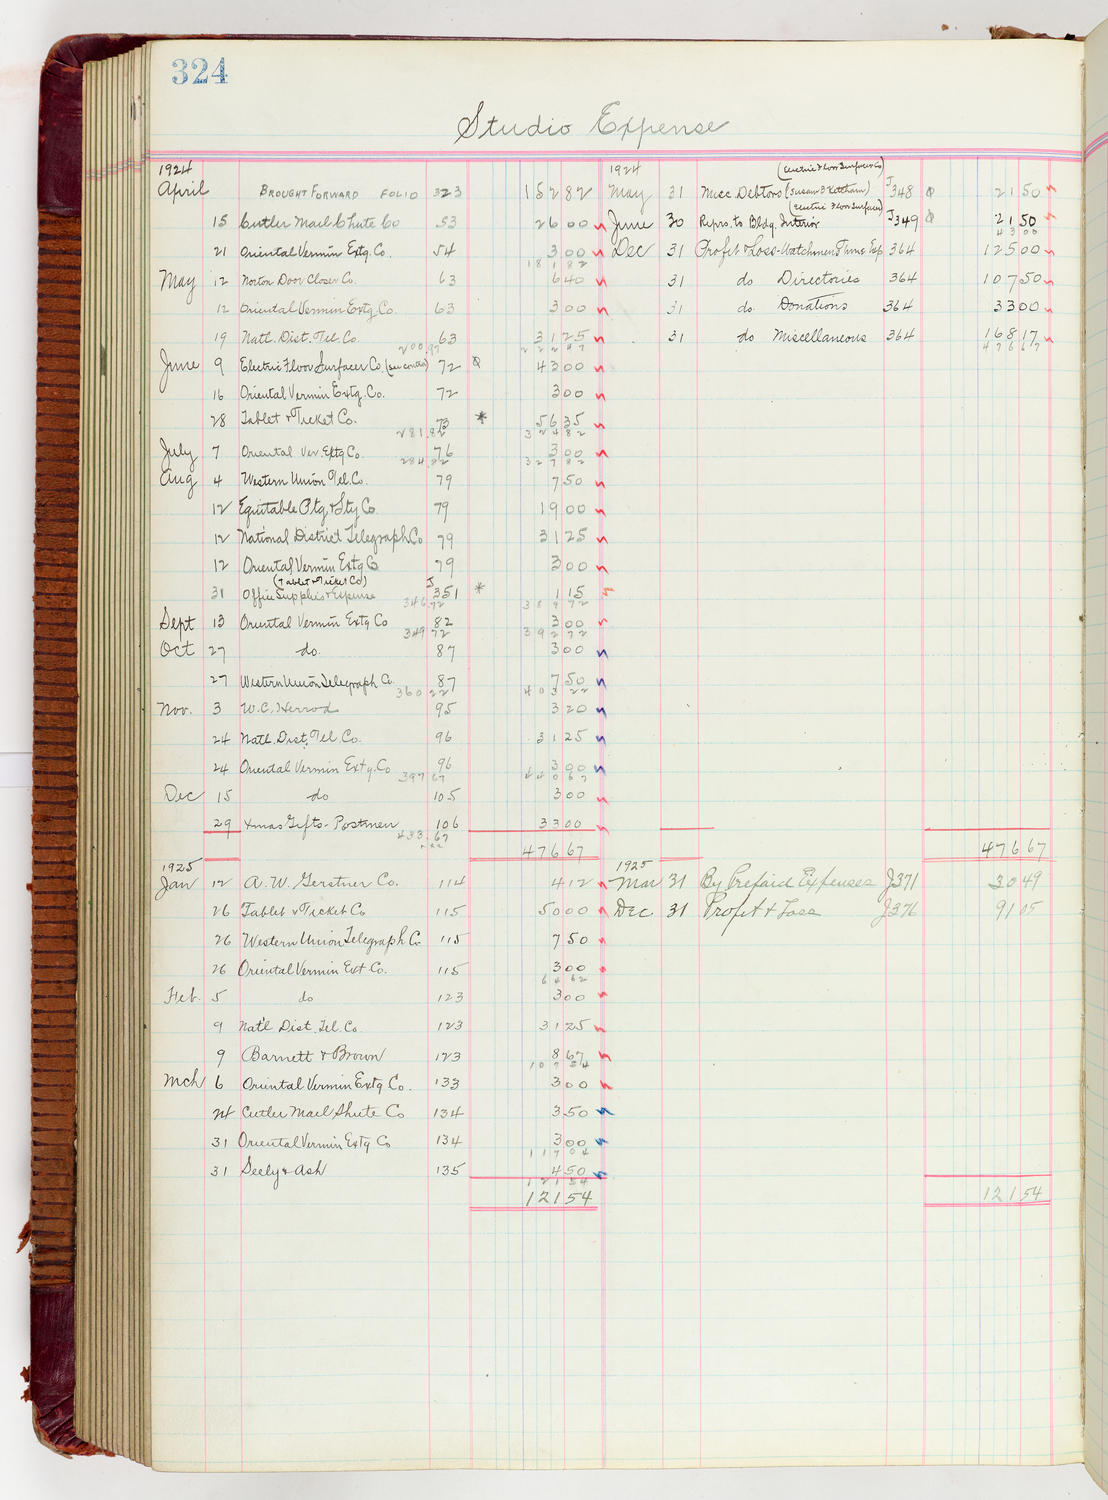 324
Studio Expense
1924
April BROUGHT FORWARD FOLIO 323 152 82
15 Cutler Mail Chute Co 53 26 00
21 Oriental Vermin Extg. Co. 54 3 00
181 82
May 12 Norton Door Closer Co. 63 6 40
12 Oriental Vermin Extg. Co. 63 3 00
19 Natl. Dist. Tel. Co. 63 31 25
200.97 222 47
June 9 Electric Floor Surfacer Co. (see contra) 72 43 00
16 Oriental Vermin Extg. Co. 72 3 00
28 Tablet & Ticket Co. 73 * 56 35
281.82 324 82
July 7 Oriental Ver. Extg Co. 76 3 00
284.82 327 82
Aug 4 Western Union Tel. Co. 79 7 50
12 Equitable Ptg & Sty Co. 79 19 00
12 National District Telegraph Co 79 31 25
12 Oriental Vermin Extg Co 79 3 00
(Tablet & Ticket Co)
31 Office Supplies & Expense J351 * 1 15
346.72 389 72
Sept 13 Oriental Vermin Extg Co 82 3 00
349 72 392 72
Oct 27 do. 87 3 00
27 Western Union Telegraph Co. 87 7 50
360 22 403 22
Nov. 3 W. C. Herrod 95 3 20
24 Natl. Dist. Tel Co. 96 31 25
24 Oriental Vermin Extg. Co 96 3 00
397 67 440 67
Dec 15 do 105 3 00
29 Xmas Gifts - Postmen 106 33 00
433.67
476 67
1925
Jan 12 A. W. Gerstner Co. 114 4 12
26 Tablet & Ticket Co 115 50 00
26 Western Union Telegraph Co 115 7 50
26 Oriental Vermin Ext Co. 115 3 00
64 62
Feb. 5 do 123 3 00
9 Nat'l Dist. Tel. Co. 123 31 25
9 Barnett & Brown 123 8 67
107 54
Mch 6 Oriental Vermin Extg Co. 133 3 00
24 Cutler Mail Shute Co 134 3 50
31 Oriental Vermin Extg Co 134 3 00
117 04
31 Seely & Ash 135 4 50
121 54
121 54
1924
(Electric Floor Surfacer Co)
May 31 Misc Debtors (Susan B Ketcham) J348 21 50
(Electric Floor Surfacer)
June 30 Reprs. to Bldg. Interior J349 21 50
43 00
Dec 31 Profit & Loss - Watchmen Time Exp 364 125 00
31 do Directories 364 107 50
31 do. Donations 364 33 00
31 do Miscellaneous 364 168 17
476 67
476 67
1925
Mar 31 By Prepaid Expenses J371 30 49
Dec 31 Profit & Loss J376 91 05
121 54